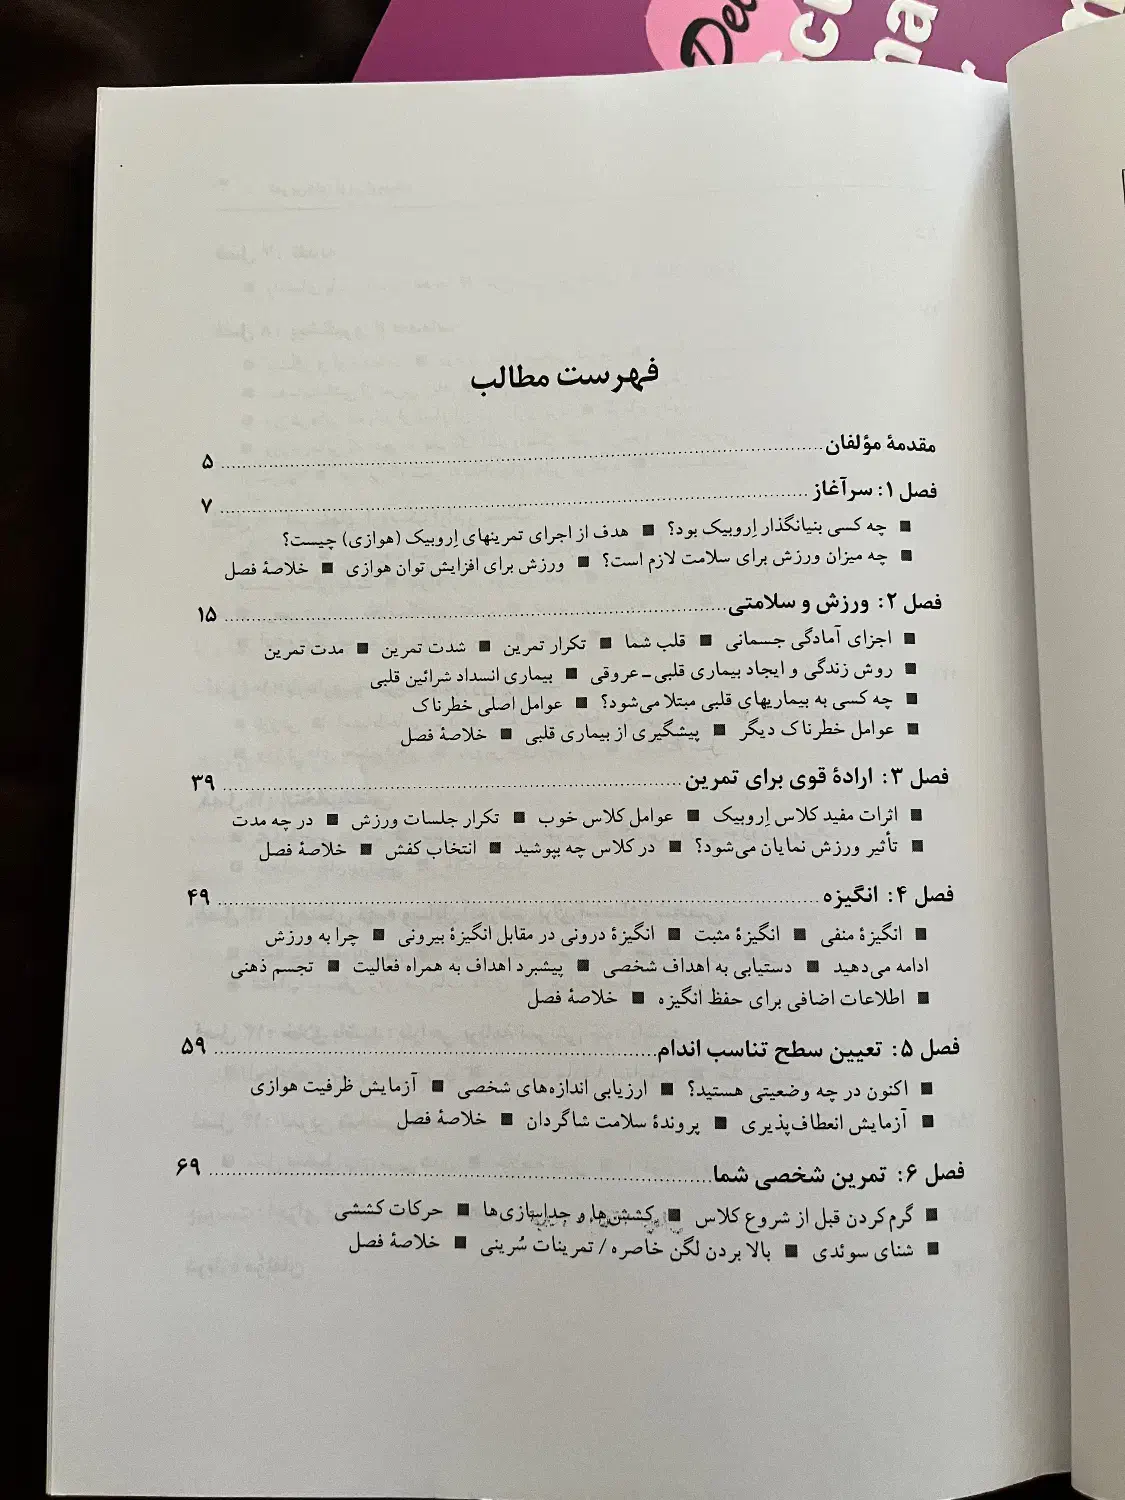 Del
فهرست مطالب
مقدمهٔ مؤلفان ۵
فصل ۱: سرآغاز ۷
■ چه کسی بنیانگذار اِروبیک بود؟ ■ هدف از اجرای تمرینهای اِروبیک (هوازی) چیست؟
■ چه میزان ورزش برای سلامت لازم است؟ ■ ورزش برای افزایش توان هوازی ■ خلاصهٔ فصل
فصل ۲: ورزش و سلامتی ۱۵
■ اجزای آمادگی جسمانی ■ قلب شما ■ تکرار تمرین ■ شدت تمرین ■ مدت تمرین
■ روش زندگی و ایجاد بیماری قلبی ـ عروقی ■ بیماری انسداد شرائین قلبی
■ چه کسی به بیماریهای قلبی مبتلا می‌شود؟ ■ عوامل اصلی خطرناک
■ عوامل خطرناک دیگر ■ پیشگیری از بیماری قلبی ■ خلاصهٔ فصل
فصل ۳: ارادهٔ قوی برای تمرین ۳۹
■ اثرات مفید کلاس اِروبیک ■ عوامل کلاس خوب ■ تکرار جلسات ورزش ■ در چه مدت
■ تأثیر ورزش نمایان می‌شود؟ ■ در کلاس چه بپوشید ■ انتخاب کفش ■ خلاصهٔ فصل
فصل ۴: انگیزه ۴۹
■ انگیزهٔ منفی ■ انگیزهٔ مثبت ■ انگیزهٔ درونی در مقابل انگیزهٔ بیرونی ■ چرا به ورزش
ادامه می‌دهید ■ دستیابی به اهداف شخصی ■ پیشبرد اهداف به همراه فعالیت ■ تجسم ذهنی
■ اطلاعات اضافی برای حفظ انگیزه ■ خلاصهٔ فصل
فصل ۵: تعیین سطح تناسب اندام ۵۹
■ اکنون در چه وضعیتی هستید؟ ■ ارزیابی اندازه‌های شخصی ■ آزمایش ظرفیت هوازی
■ آزمایش انعطاف‌پذیری ■ پروندهٔ سلامت شاگردان ■ خلاصهٔ فصل
فصل ۶: تمرین شخصی شما ۶۹
■ گرم کردن قبل از شروع کلاس ■ کشش‌ها و جداسازی‌ها ■ حرکات کششی
■ شنای سوئدی ■ بالا بردن لگن خاصره / تمرینات سُرینی ■ خلاصهٔ فصل